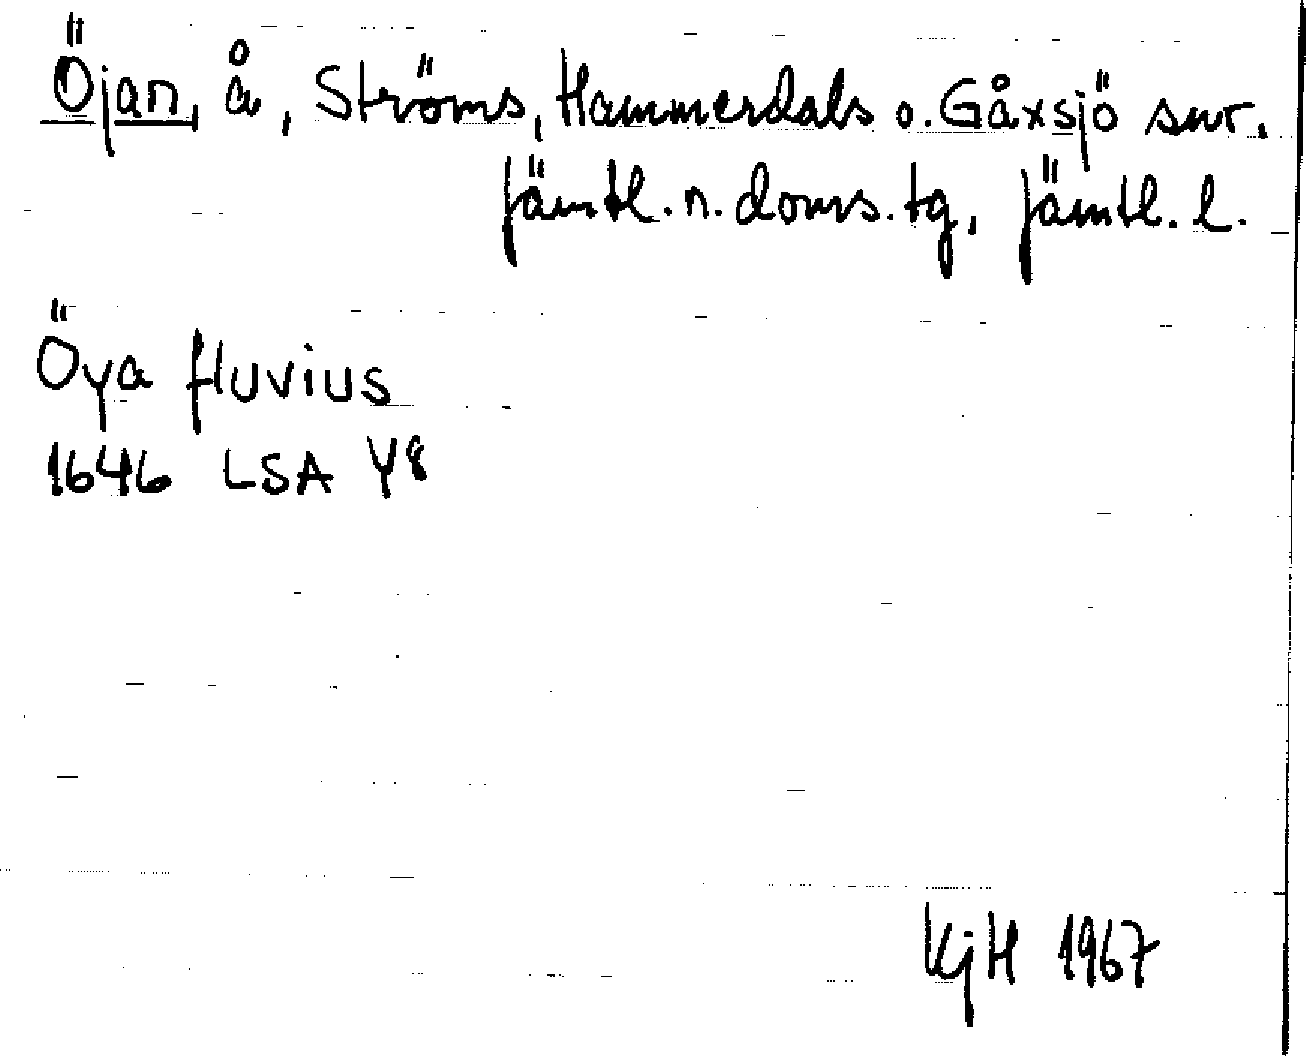 Öjan, å, Ströms, Hammerdals o. Gåxsjö snr.
Jämtl. n. doms. tg, Jämtl. l.
Öya fluvius
1646 LSA Y8
KjH 1967